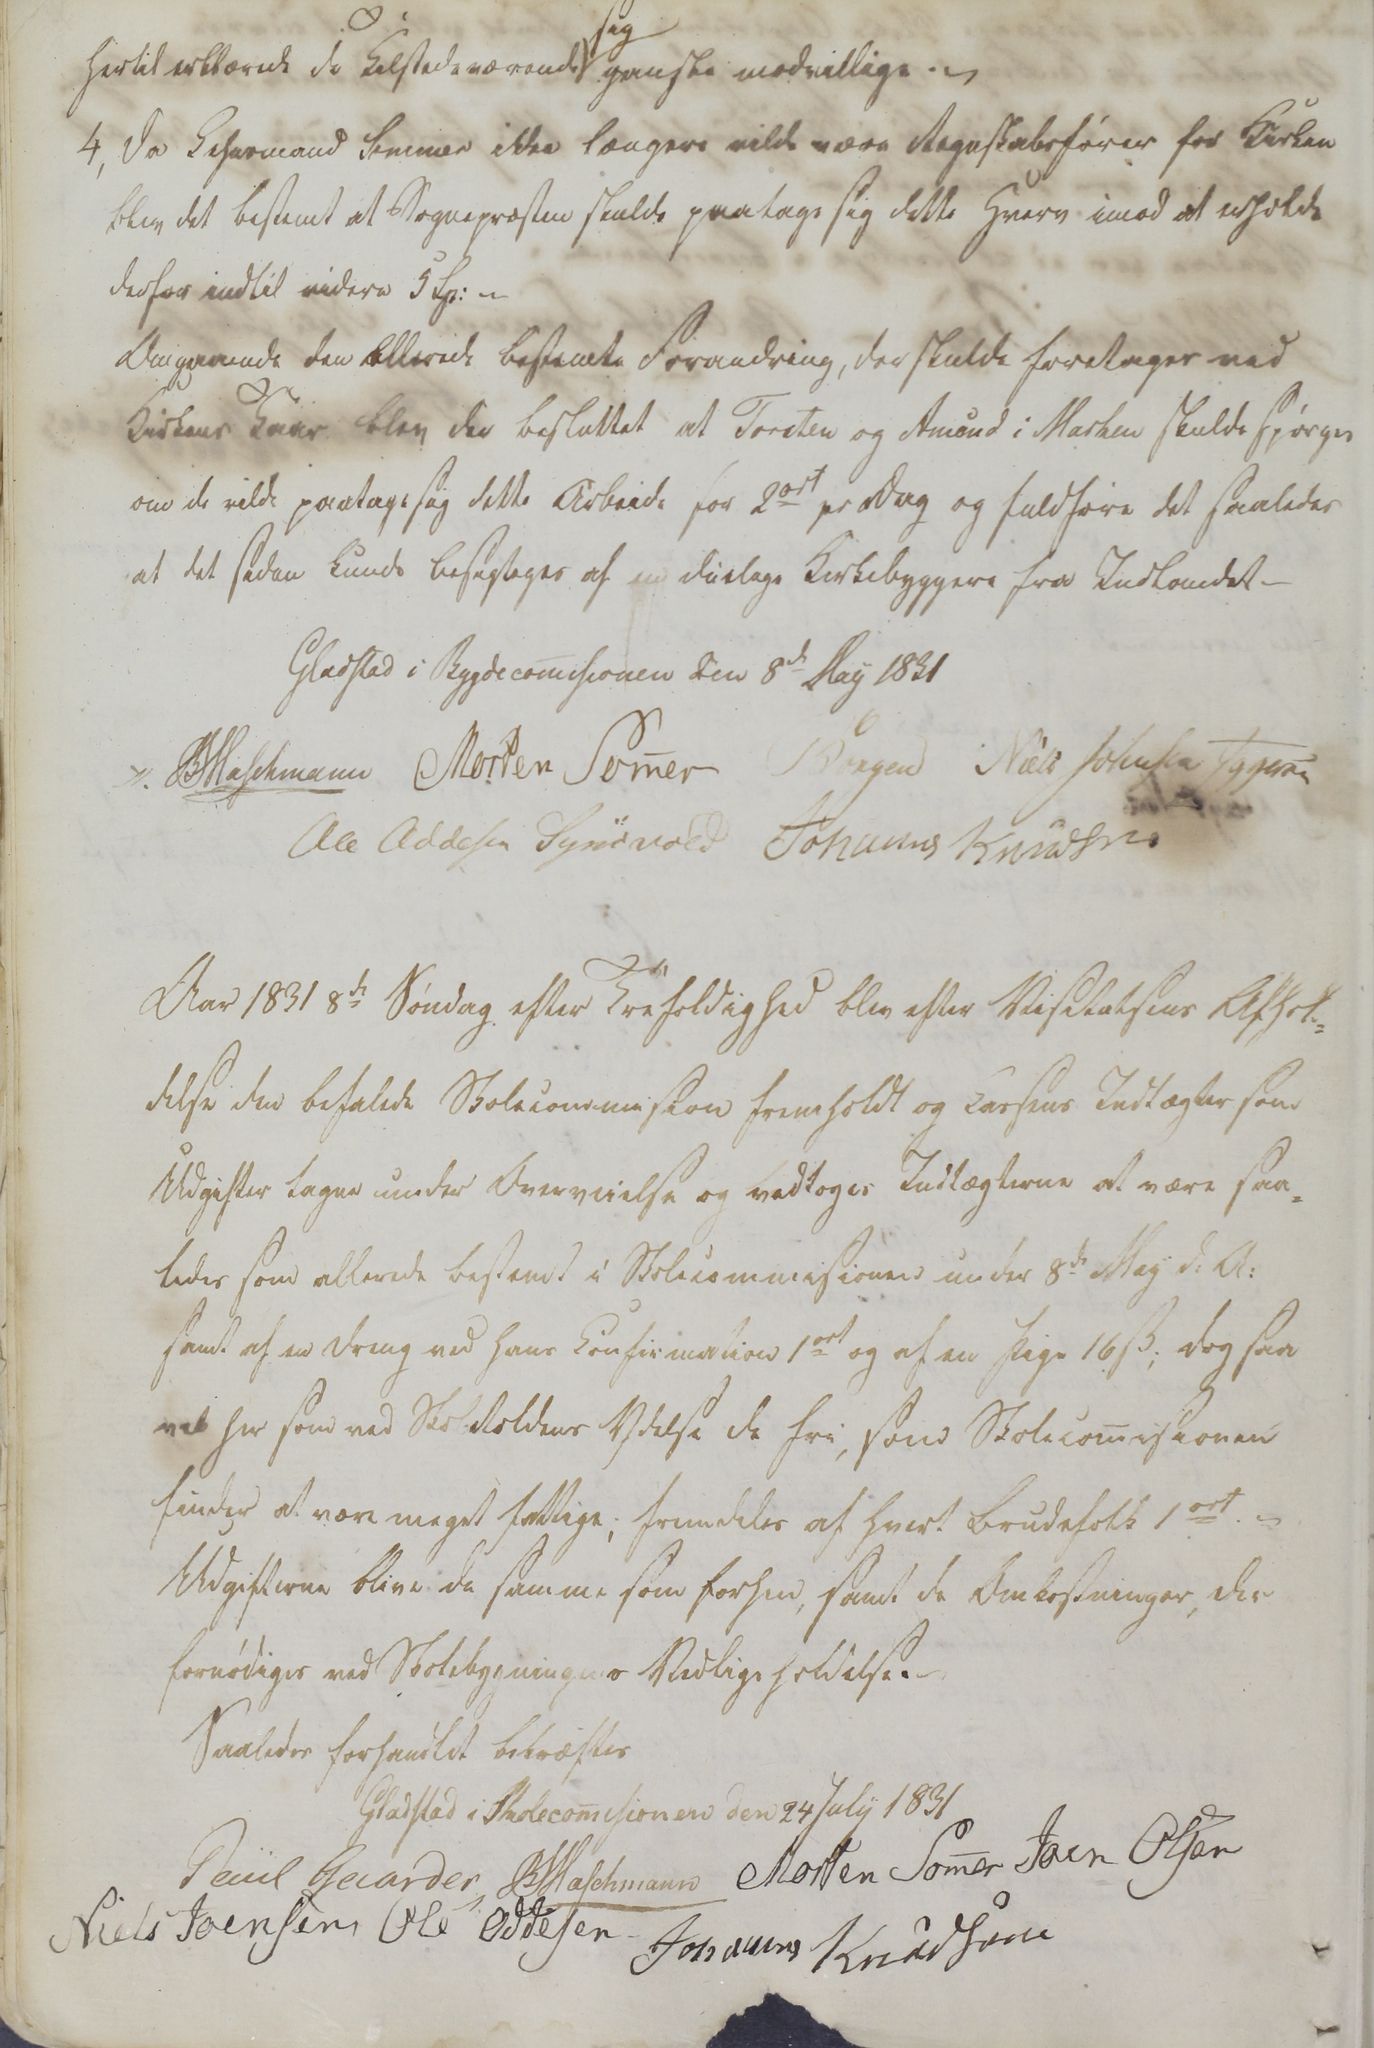 sig
hertil erklærede de Tilstedeværende ganske modvillige.
4, Da Lehnsmand Sommer ikke længere vilde være Regnskabsfører for Kirken
blev det bestemt at Sognepræsten skulde paatage sig dette Hverv imod at erholde
derfor indtil videre 5 Sp:
Angaaende den allerede bestemte Forandring, der skulde foretages ved
Kirkens Taar blev der besluttet at Torsten og Amund i Marken skulde spørges
om de vilde paatage sig dette Arbeide for 2 ort pr Dag og fuldføre det saaledes
at det siden kunde besigtiges af en duelige Kirkebyggere fra Indlandet
Gladstad i Bygdecom̄isionen den 8de May 1831
BMaschmann Morten Som̄er Niels Johnsen
Ole Addesen Johannes Knudsen
Aar 1831 8de Søndag efter Trefoldighed blev efter Visitatsens Afhol-
delse den befalede Skolecommission fremholdt og Cassens Indtægter som
Udgifter tagne under Overveielse og vedtoges Indtægterne at være saa-
ledes som allerede bestemt i Skolecommisionen under 8de May d: A:
samt af en Dreng ved hans Confirmation 1 ort og af en Pige 16 ß; dog saa
vel her som ved Skoletoldens Ydelse de fri, som Skolecom̄isionen
finder at være meget fattige; fremdeles af hvert Brudefolk 1 ort.
Udgifterne blive de samme som forhen, samt de Omkostninger, der
fornødiges ved Skolebygningens Vedligeholdelse.
Saaledes forhandlet bekræftes
Gladstad i Skolecom̄isionen den 24 July 1831
Paul Gaarder BMaschmann Morten Som̄er Joen Olsen
Niels Joensen Ole Oddesen Johannes Knudsen